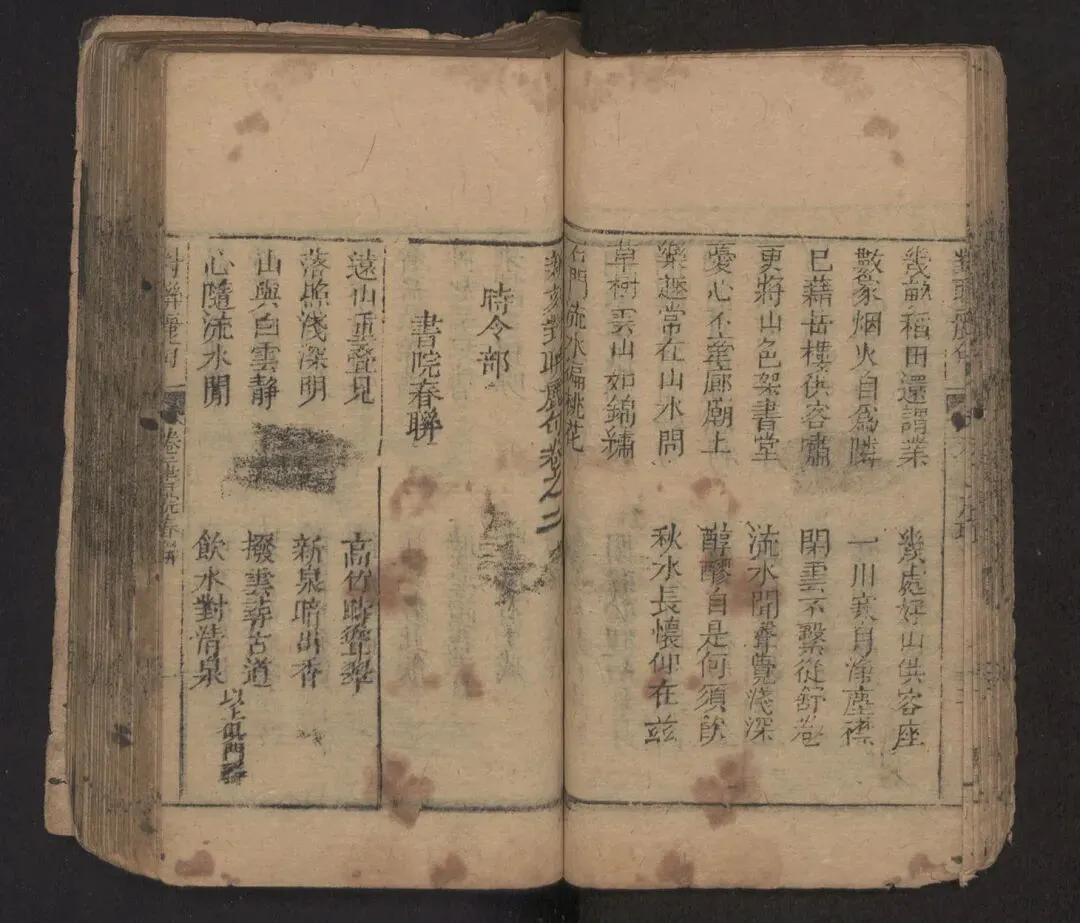 幾畝稻田還謂業
幾處好山供容座
數家烟火自為隣
一川寒月淨塵襟
已藉岳樓供容嘯
閑雲不繫從舒卷
更將山色架書堂
流水聞聲覺淺深
憂心不至廊廟上
醇醪自是何須飲
樂趣常在山水間
秋水長懷仰在茲
草樹雲山如錦繡
石門流水徧桃花
對聯麗句卷之二
時令部
書院春聯
遠山重疊見
高竹時聳翠
落照淺深明
新泉暗出香
山與白雲靜
撥雲尋古道
心隨流水閒
飲水對清泉
以上
對聯麗句
卷二書院春